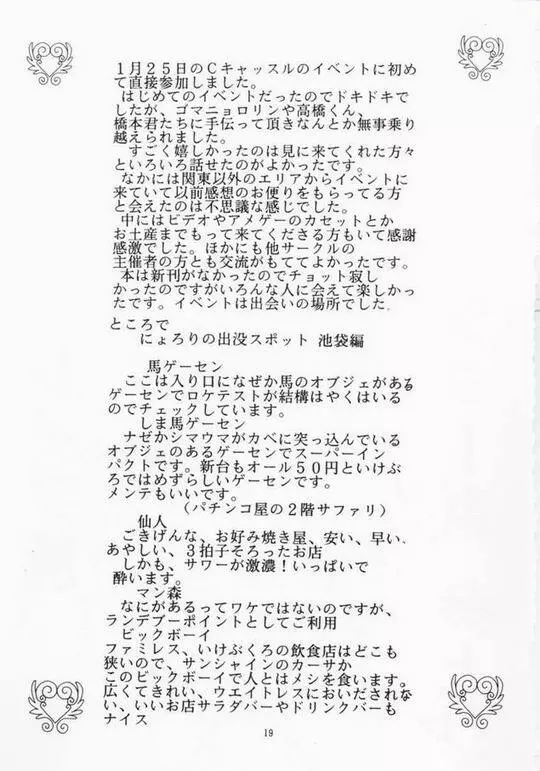 １月２５日のＣキャッスルのイベントに初め
て直接参加しました。
はじめてのイベントだったのでドキドキで
したが、ゴマニョロリンや高橋くん、
橋本君たちに手伝って頂きなんとか無事乗り
越えられました。
すごく嬉しかったのは見に来てくれた方々
といろいろ話せたのがよかったです。
なかには関東以外のエリアからイベントに
来ていて以前感想のお便りをもらってる方
と会えたのは不思議な感じでした。
中にはビデオやアメゲーのカセットとか
お土産までもって来てくださる方もいて感謝
感激でした。ほかにも他サークルの
主催者の方とも交流がもててよかったです。
本は新刊がなかったのでチョット寂し
かったのですがいろんな人に会えて楽しかっ
たです。イベントは出会いの場所でした.
ところで
にょろりの出没スポット 池袋編
馬ゲーセン
ここは入り口になぜか馬のオブジェがある
ゲーセンでロケテストが結構はやくはいる
のでチェックしています。
しま馬ゲーセン
ナゼかシマウマがカベに突っ込んでいる
オブジェのあるゲーセンでスーパーイン
パクトです。新台もオール５０円といけぶ
ろではめずらしいゲーセンです。
メンテもいいです。
（パチンコ屋の２階サファリ）
仙人
ごきげんな、お好み焼き屋、安い、早い、
あやしい、３拍子そろったお店
しかも、サワーが激濃！いっぱいで
酔います。
マン森
なにがあるってワケではないのですが、
ランデブーポイントとしてご利用
ビックボーイ
ファミレス、いけぶくろの飲食店はどこも
狭いので、サンシャインのカーサか
このビックボーイで人とはメシを食います。
広くてきれい、ウエイトレスにおいだされな
い、いいお店サラダバーやドリンクバーも
ナイス
19